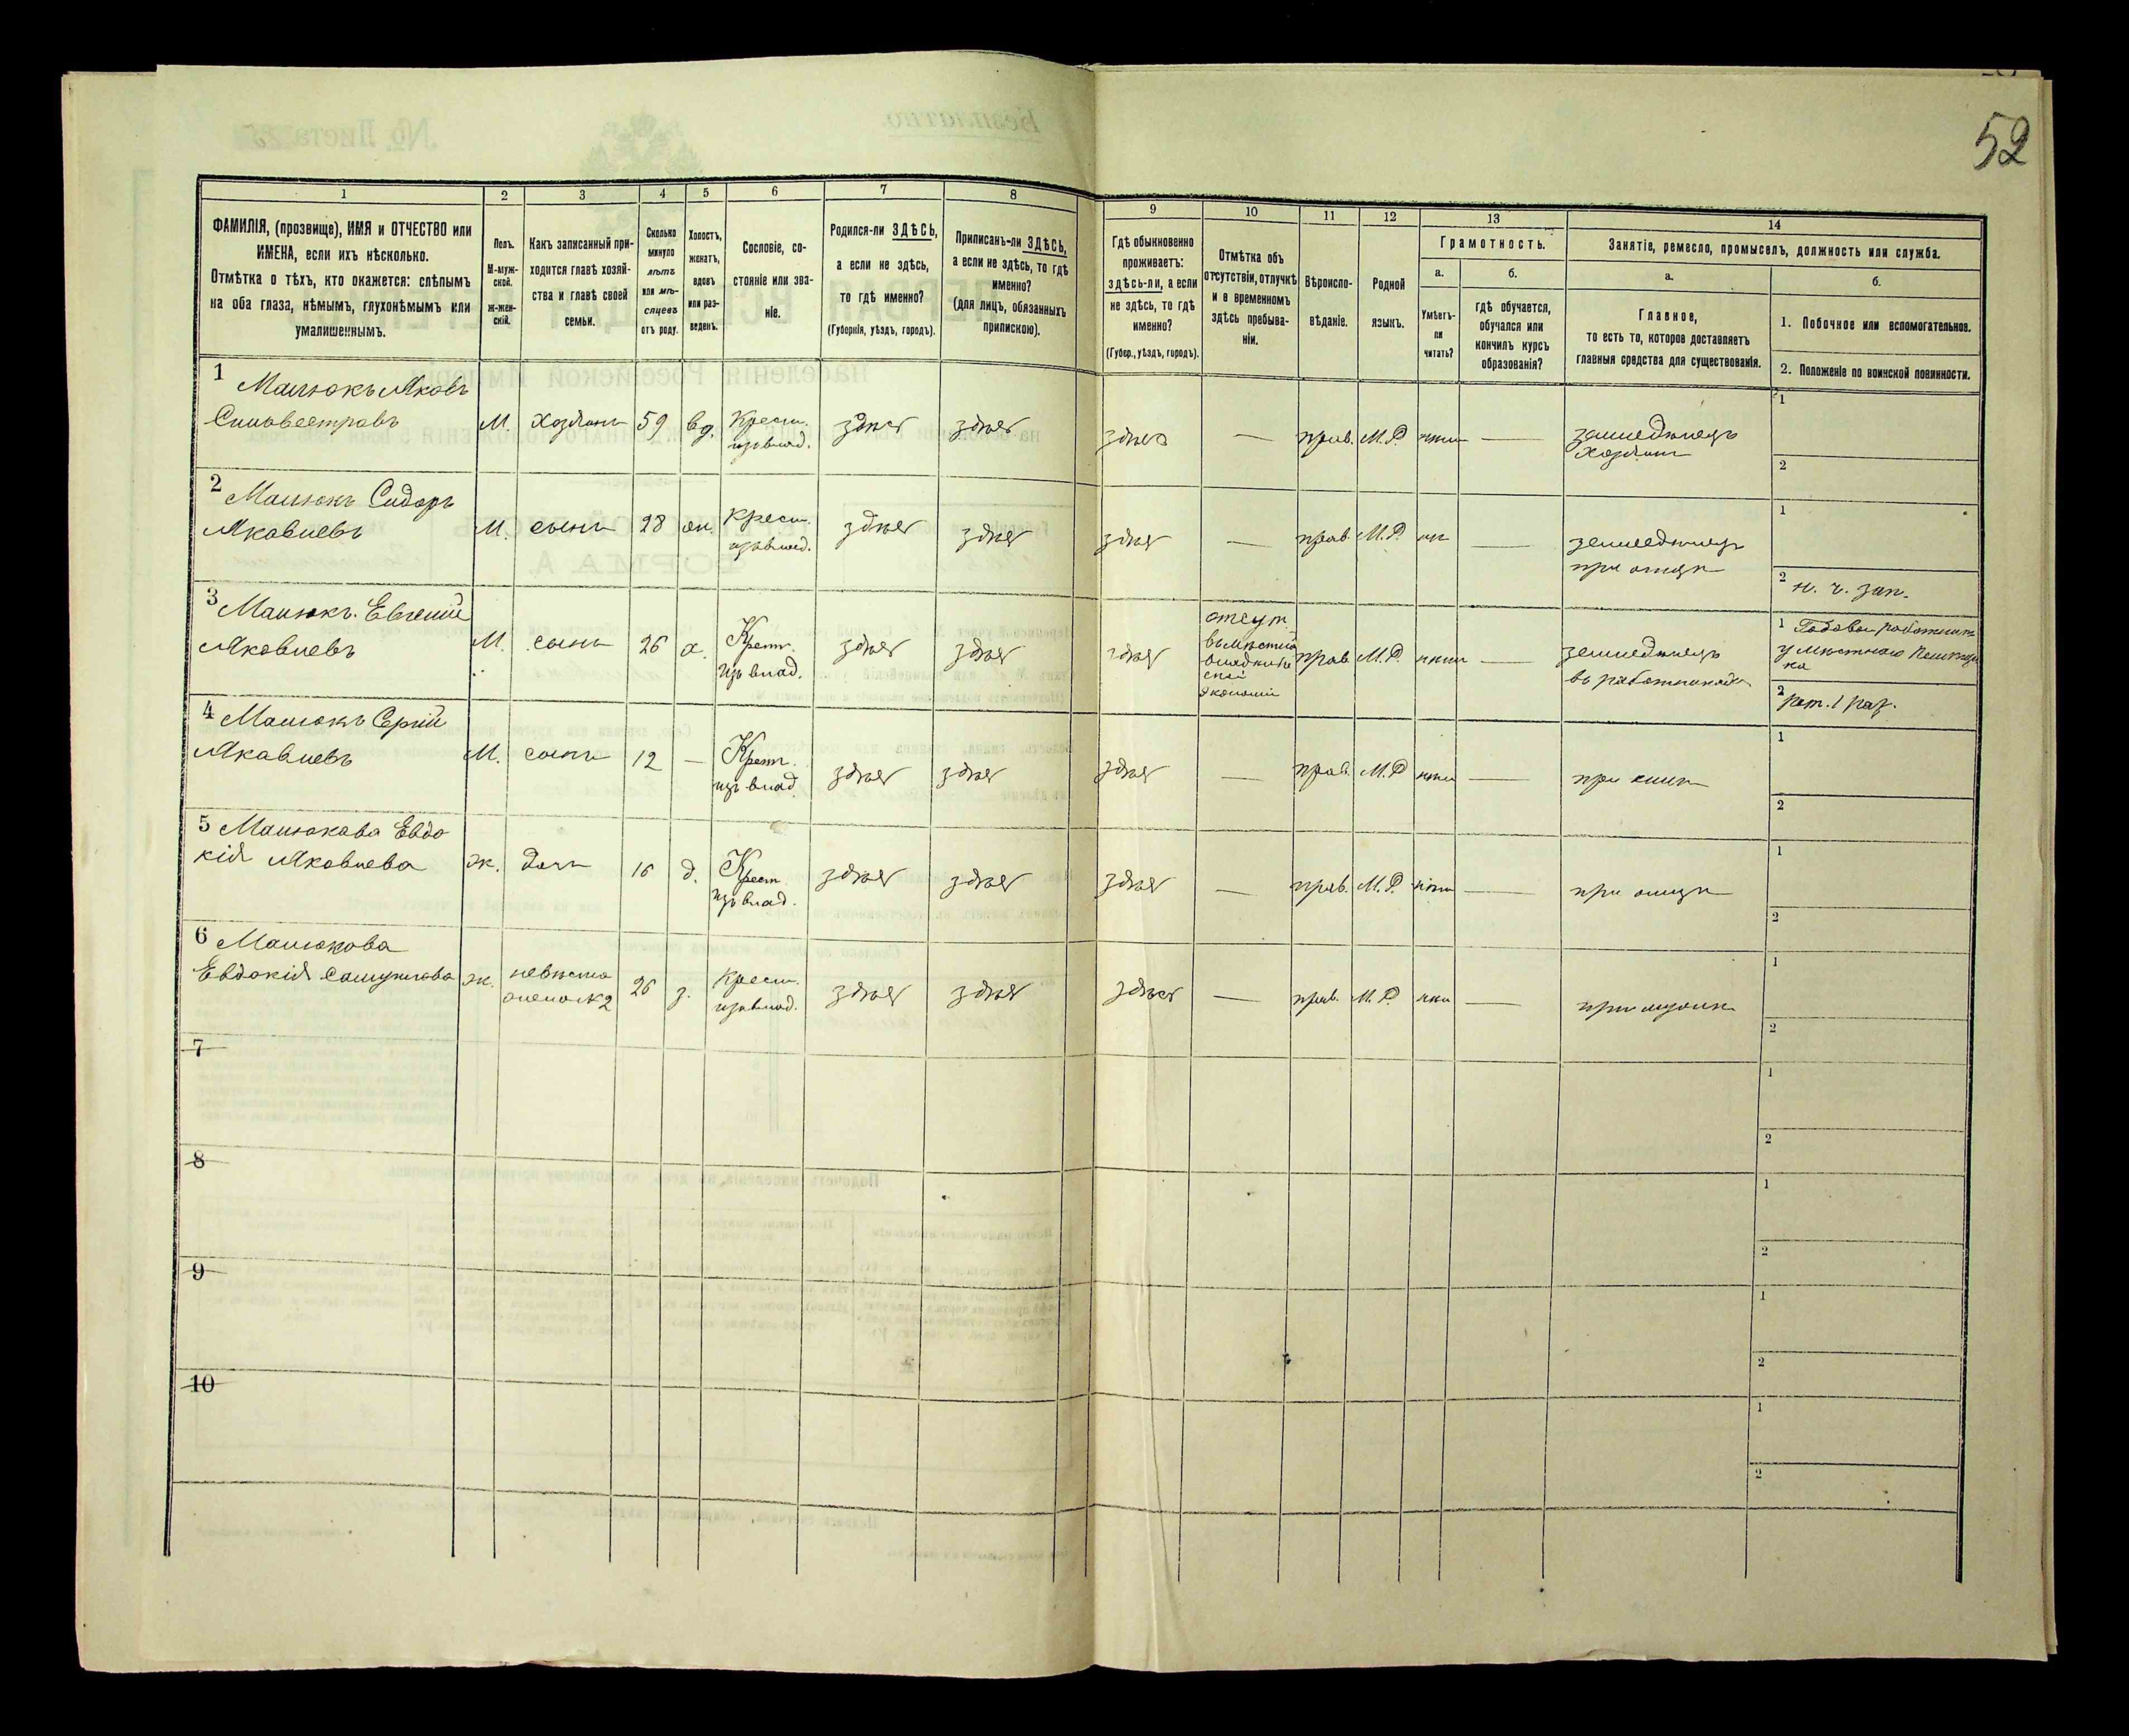 52
1
2
3
4
5
6
7
8
9
10
11
12
13
14
ФАМИЛІЯ, (прозвище), ИМЯ и ОТЧЕСТВО или
ИМЕНА, если ихъ нѣсколько.
Отмѣтка о тѣхъ, кто окажется: слѣпымъ
на оба глаза, нѣмымъ, глухонѣмымъ или
умалишеннымъ.
Полъ.
М-муж-
ской.
ж-жен-
скій.
Какъ записанный при-
ходится главѣ хозяй-
ства и главѣ своей
семьи.
Сколько
минуло
лѣтъ
или мѣ-
сяцевъ
отъ роду.
Холостъ,
женатъ,
вдовъ
или раз-
веденъ.
Сословіе, со-
стояніе или зва-
ніе.
Родился-ли ЗДѢСЬ,
а если не здѣсь,
то гдѣ именно?
(Губернія, уѣздъ, городъ).
Приписанъ-ли ЗДѢСЬ,
а если не здѣсь, то гдѣ
именно?
(для лицъ, обязанныхъ
припискою).
Гдѣ обыкновенно
проживаетъ:
здѣсь-ли, а если
не здѣсь, то гдѣ
именно?
(Губер., уѣздъ, городъ).
Отмѣтка объ
отсутствіи, отлучкѣ
и о временномъ
здѣсь пребыва-
ніи.
Вѣроиспо-
вѣданіе.
Родной
языкъ.
Грамотность.
а.
Умѣетъ-
ли
читать?
б.
гдѣ обучается,
обучался или
кончилъ курсъ
образованія?
Занятіе, ремесло, промыселъ, должность или служба.
а.
Главное,
то есть то, которое доставляетъ
главныя средства для существованія.
б.
1. Побочное или вспомогательное.
2. Положеніе по воинской повинности.
1 Яковъ
М. Хозяинъ 59 вд. Крест. изъ влад. здѣсь здѣсь здѣсь — прав. М.Р. нѣтъ — земледѣлецъ хозяинъ
1
2
2 Сидоръ
Яковлевъ М. сынъ 28 Крест. изъ влад. здѣсь здѣсь здѣсь — прав. М.Р. — земледѣлецъ при отцѣ
1
2 н. ч. зап.
3 Евгеній
Яковлевъ М. сынъ 26 х. Крест. изъ влад. здѣсь здѣсь здѣсь отсут. экономіи прав. М.Р. нѣтъ — земледѣлецъ въ работникахъ
1 у мѣстнаго
2 рат. 1 раз.
4 Сергій
Яковлевъ М. сынъ 12 — Крест. изъ влад. здѣсь здѣсь здѣсь — прав. М.Р. нѣтъ — при
1
2
5 Евдо
кія Яковлева ж. дочь 16 д. Крест. изъ влад. здѣсь здѣсь здѣсь — прав. М.Р. нѣтъ — при отцѣ
1
2
6
Евдокія Самуилова ж. невѣстка 26 з. Крест. изъ влад. здѣсь здѣсь здѣсь — прав. М.Р. — при мужѣ
1
2
7
1
2
8
1
2
9
1
2
10
1
2